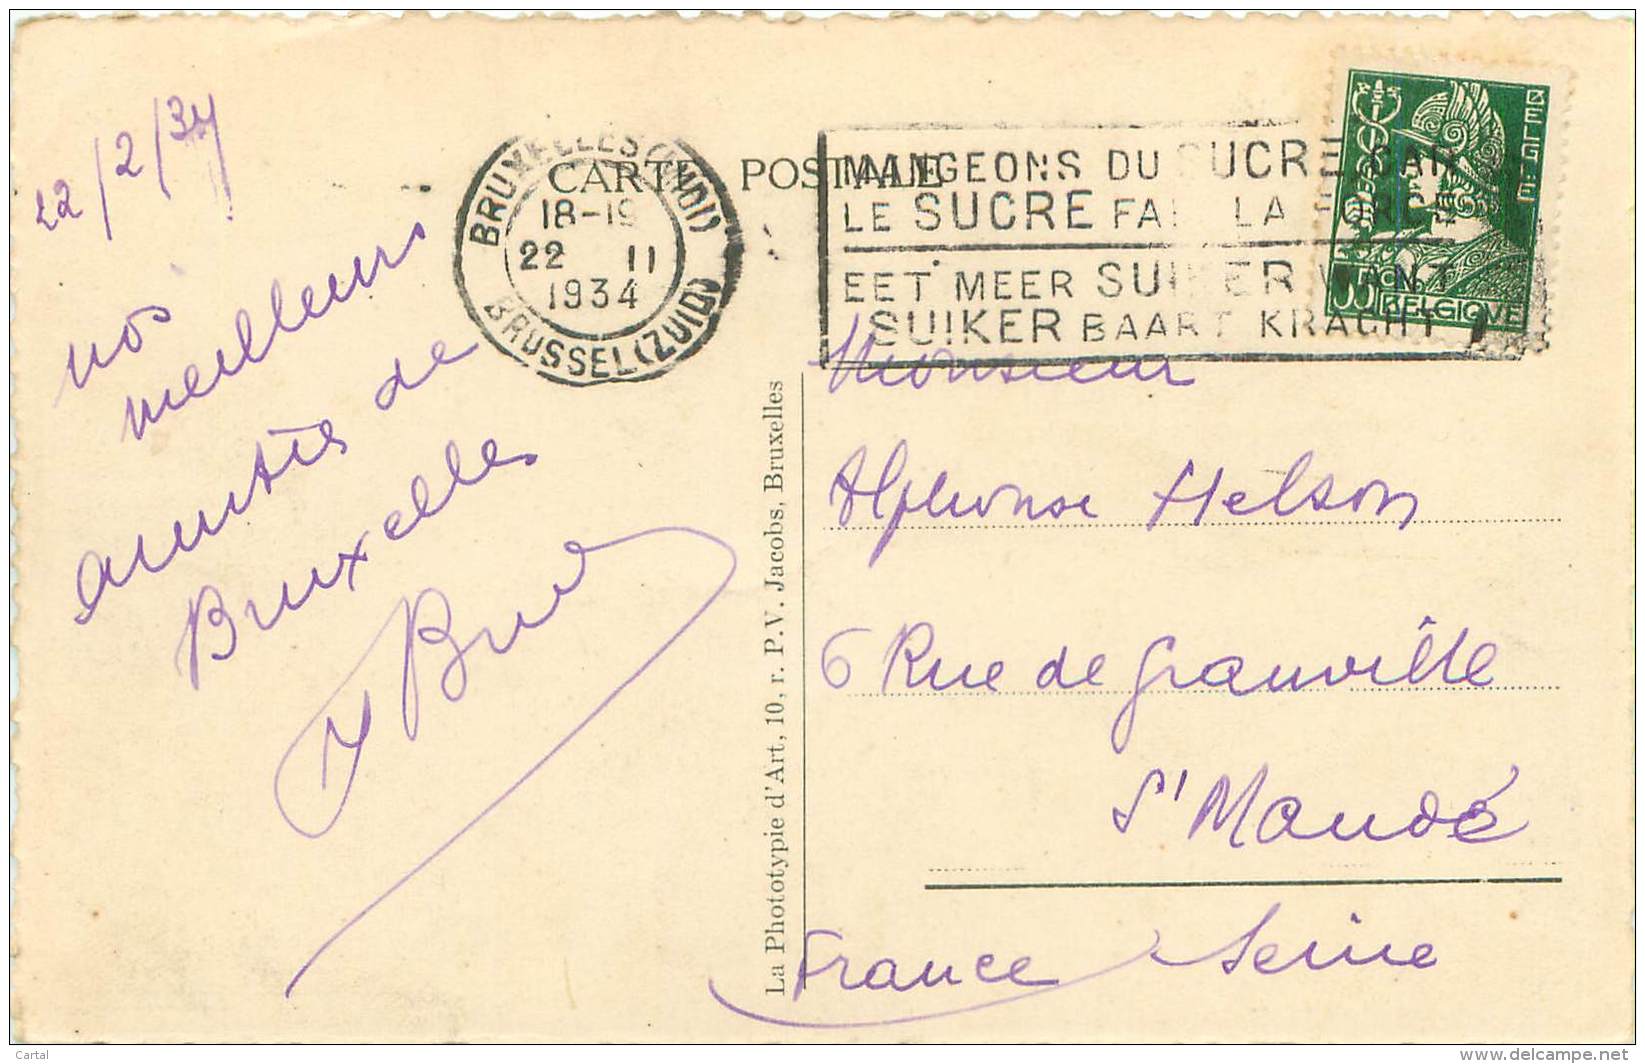 22/2/34
nos
meilleurs
amitiés de
Bruxelles
CARTE POSTALE
BRUXELLES (MIDI)
18-19
22 II
1934
BRUSSEL (ZUID)
MANGEONS DU SUCRE CAR
LE SUCRE FAIT LA FORCE
EET MEER SUIKER WANT
SUIKER BAART KRACHT
BELGIE
35
BELGIQUE
La Phototypie d'Art, 10, r. P.V. Jacobs, Bruxelles
Monsieur
Alphonse Helson
6 Rue de Granville
St Mandé
France Seine
Cartal
www.delcampe.net